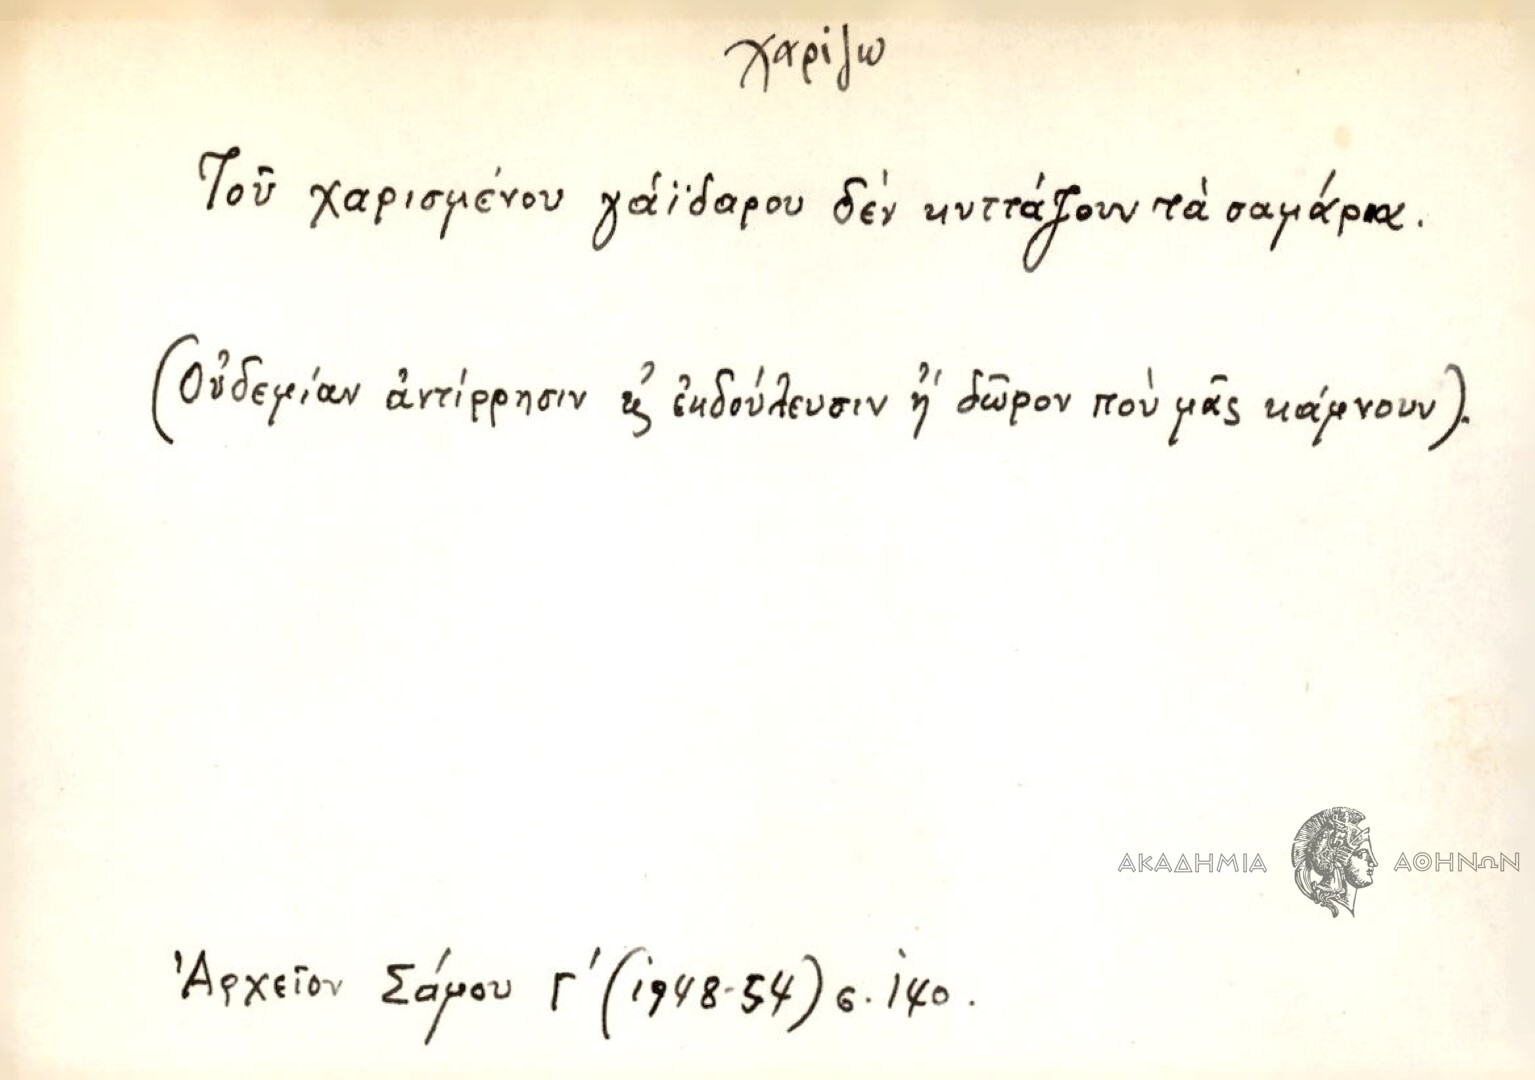 χαρίζω
Τοῦ χαρισμένου γάϊδαρου δὲν κυττάζουν τὰ σαμάρια.
(Οὐδεμίαν ἀντίρρησιν εἰς ἐκδούλευσιν ἤ δῶρον ποὺ μᾶς κάμνουν).
ΑΚΑΔΗΜΙΑ ΑΘΗΝΩΝ
Ἀρχεῖον Σάμου Γ' (1948-54) σ. 140.